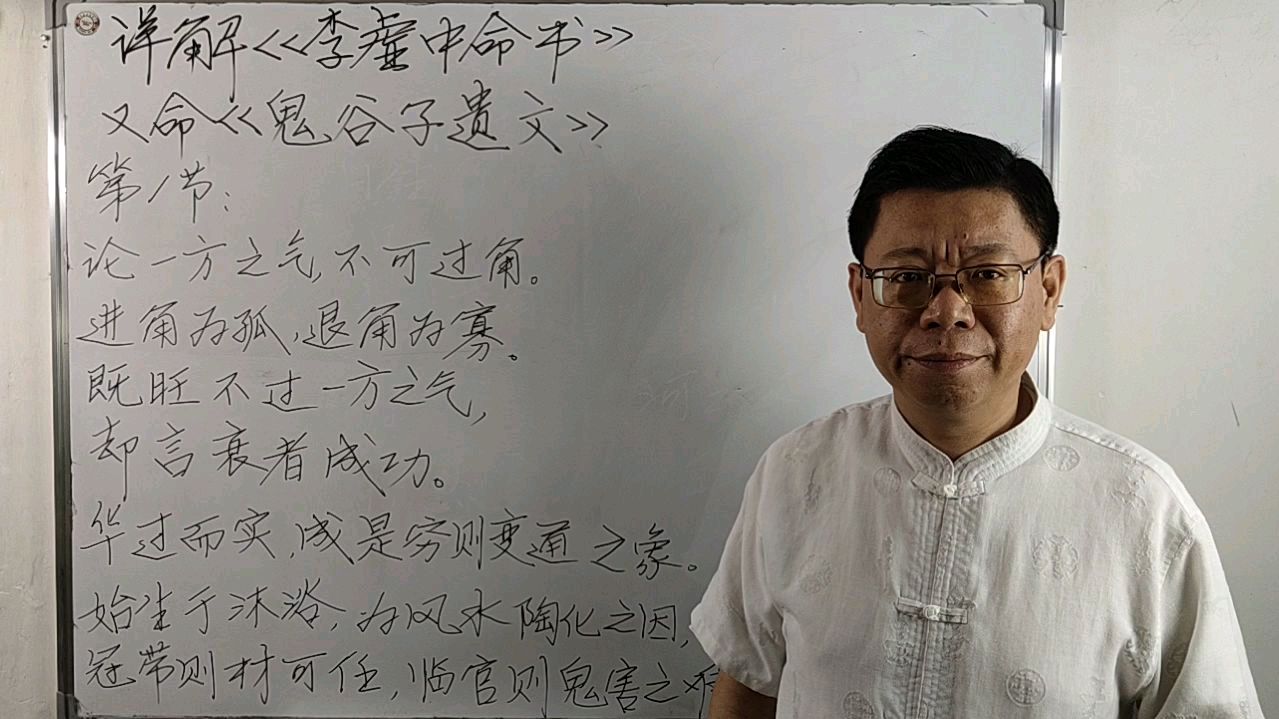 详解《李虚中命书》
又命《鬼谷子遗文》
第1节:
论一方之气,不可过角。
进角为孤,退角为寡。
既旺不过一方之气,
却言衰者成功。
华过而实,成是穷则变通之象。
始生于沐浴,为风水陶化之因,
冠带则材可任,临官则鬼害之